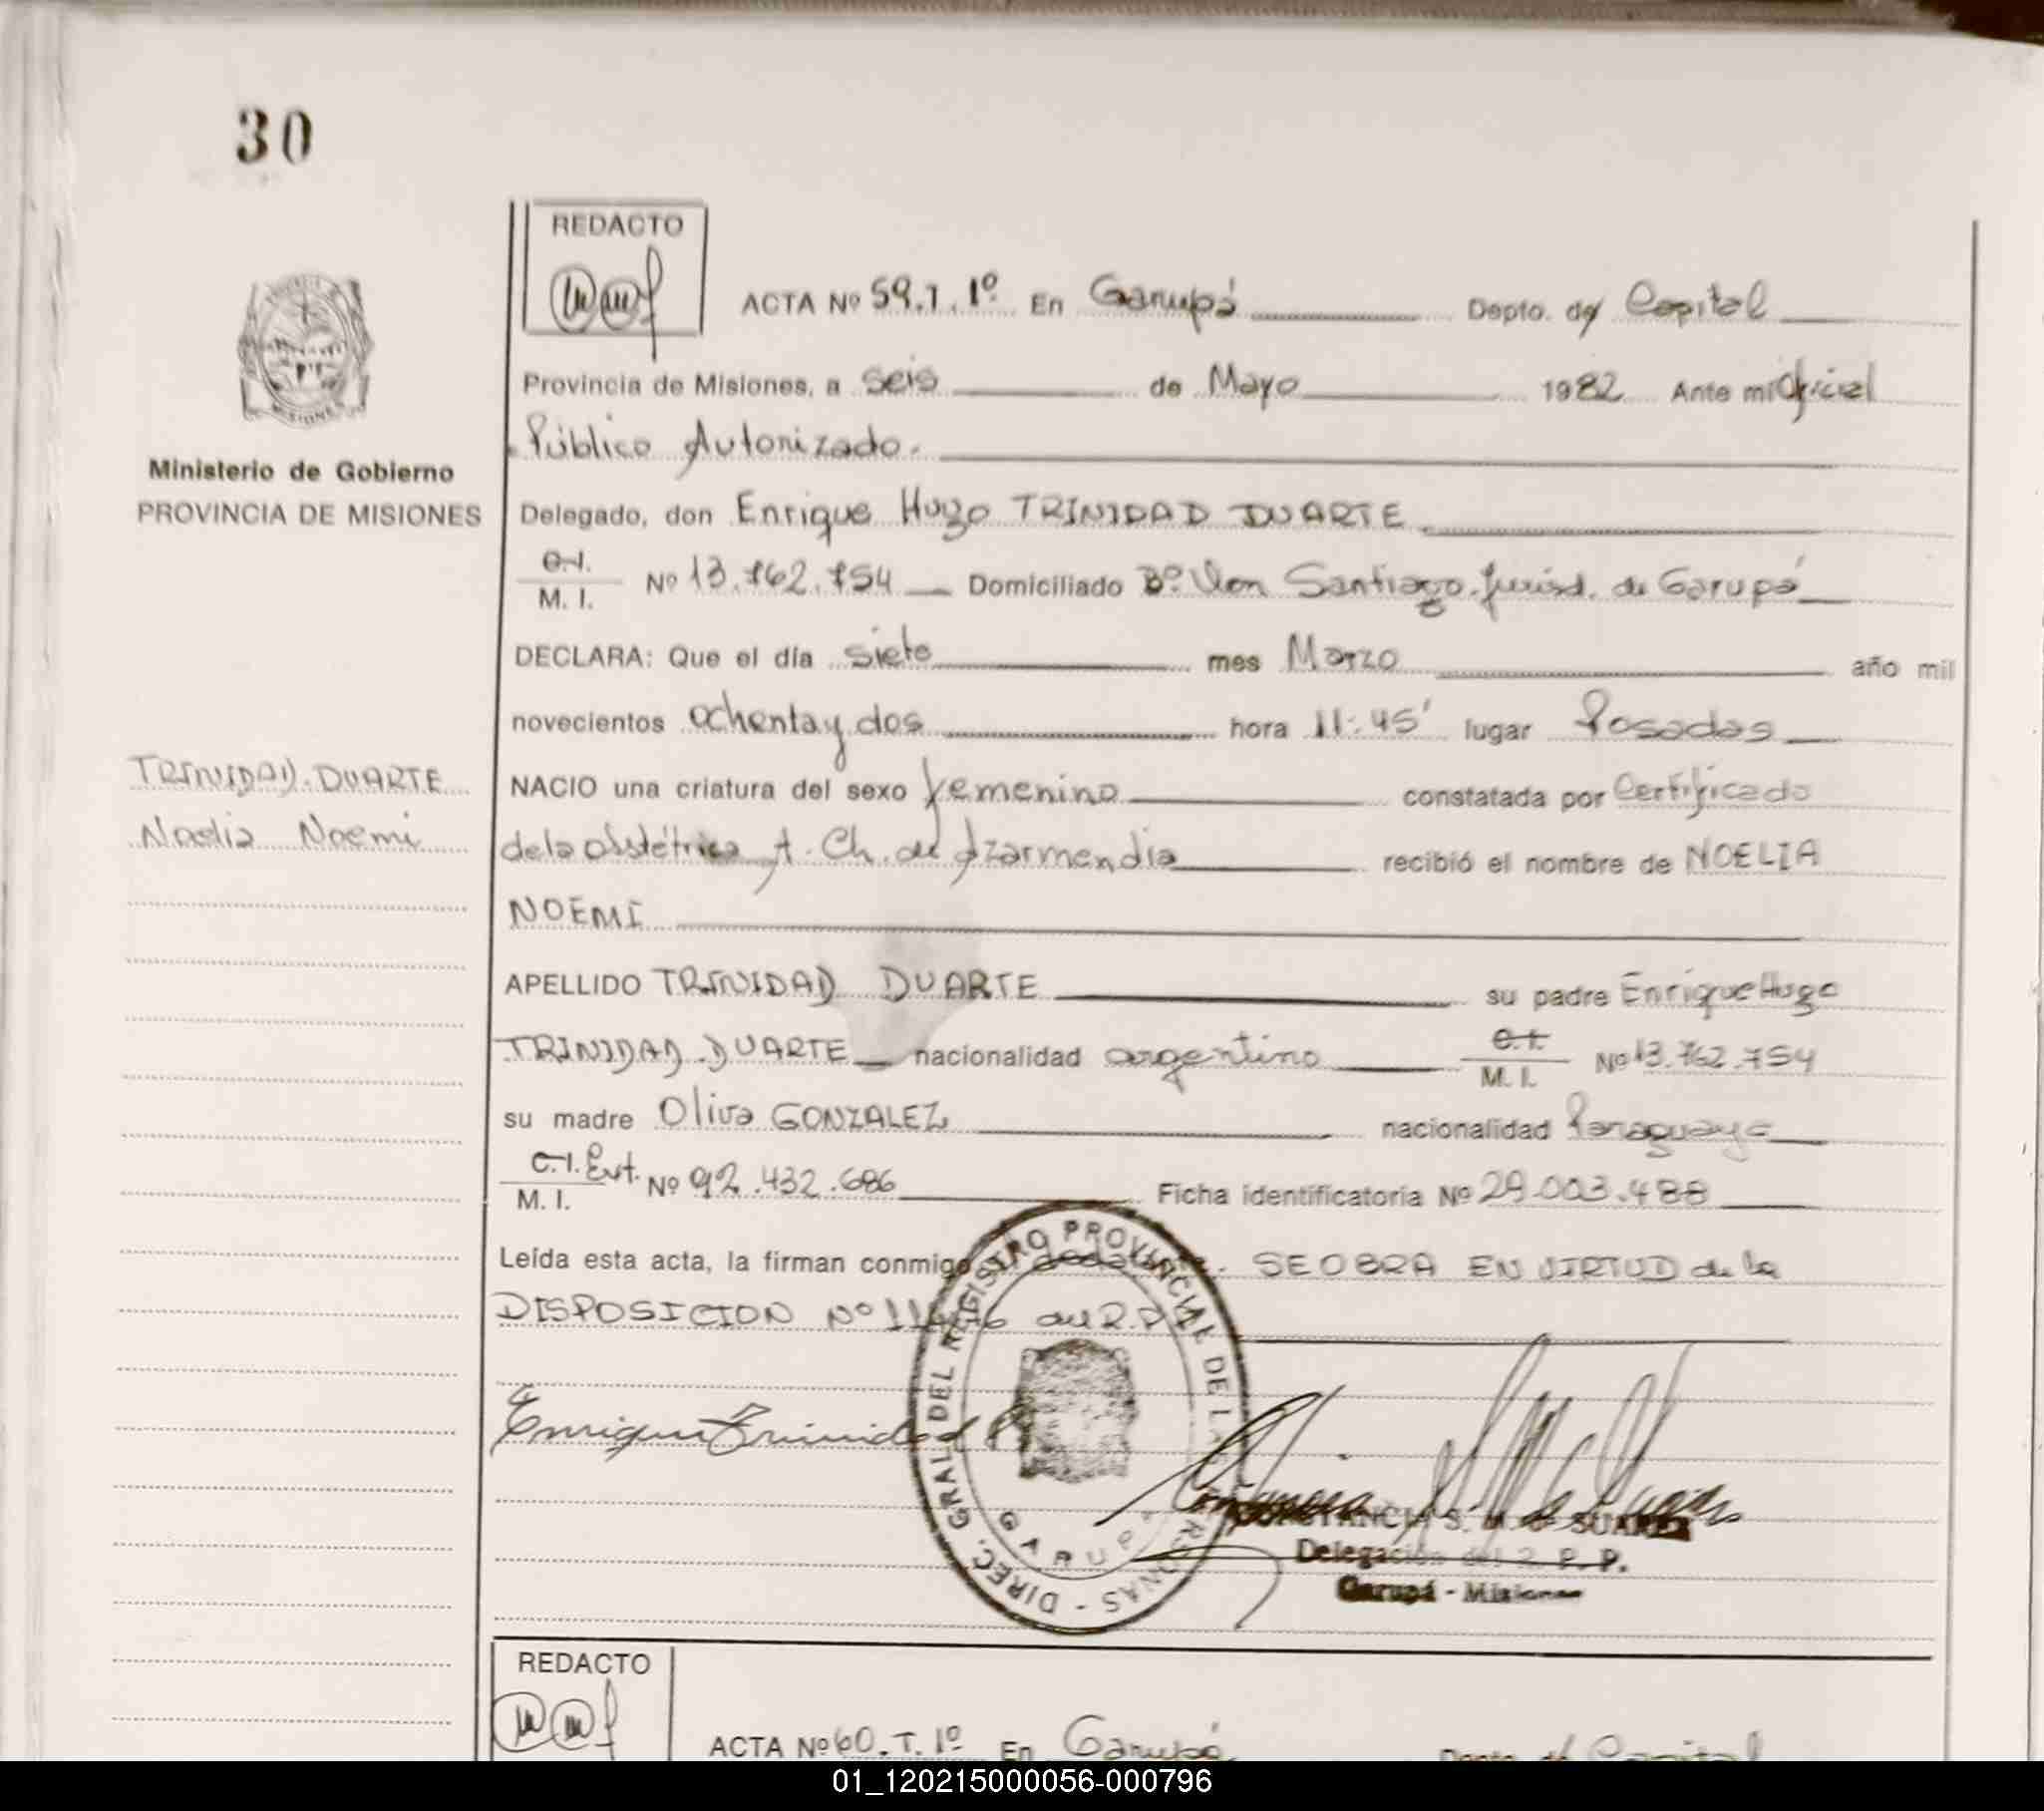 30
REDACTO
ACTA Nº 59.T.1º En Garupá Depto. de Capital
Provincia de Misiones, a seis de Mayo 1982 Ante mi Oficial
Público Autorizado.
Ministerio de Gobierno
PROVINCIA DE MISIONES
Delegado, don Enrique Hugo TRINIDAD DUARTE
C.I.
M. I. Nº 13.762.754 Domiciliado Bº Santiago. Jurisd. de Garupá
DECLARA: Que el día siete mes Marzo año mil
novecientos ochenta y dos hora 11:45' lugar Posadas
TRINIDAD DUARTE
Noelia Noemi
NACIO una criatura del sexo femenino constatada por Certificado
de la obstétrica A. Ch. de Azarmendia recibió el nombre de NOELIA
NOEMI
APELLIDO TRINIDAD DUARTE su padre Enrique Hugo
TRINIDAD DUARTE nacionalidad argentino C.I. M. I. Nº 13.762.754
su madre Oliva GONZALEZ nacionalidad Paraguaya
C.I. Ext.
M. I. Nº 92.432.686 Ficha identificatoria Nº 29.003.488
Leída esta acta, la firman conmigo SE OBRA EN VIRTUD de la
DISPOSICION Nº
DIREC. GRAL. DEL REGISTRO PROVINCIAL DE LAS PERSONAS -
GARUPA
Enrique Trinidad
CONSTANCIA S. M. SUAREZ
Delegación del R. P. P.
Garupá - Misiones
REDACTO
ACTA Nº 60.T.1º En Garupá Depto. de Capital
01_120215000056-000796